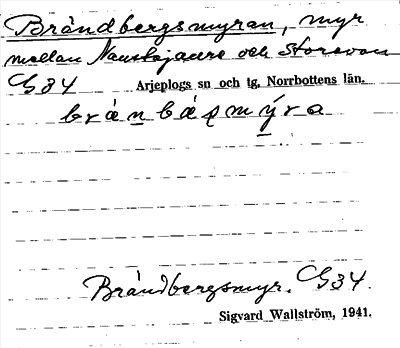 Brändbergsmyran, myr
mellan Naustajaure och Storavan
G34 Arjeplogs sn och tg, Norrbottens län.
bränbäṣmy̌ra
Brändbergsmyr. G34.
Sigvard Wallström, 1941.